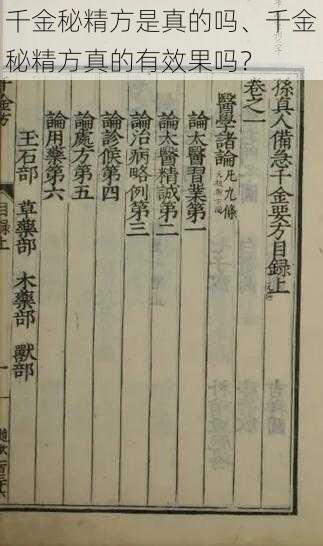 千金秘精方是真的吗、千金
秘精方真的有效果吗?
孫真人備急千金要方目録上
卷之一
醫學諸論凡九條
論太醫習業第一
論太醫精誠第二
論治病略例第三
論診候第四
論處方第五
論用藥第六
玉石部 草藥部 木藥部 獸部
千金方
目録上
一